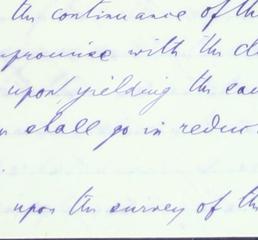 the continuance of th
promise with the d
upon yielding the
shall go in reduc
upon the survey of th